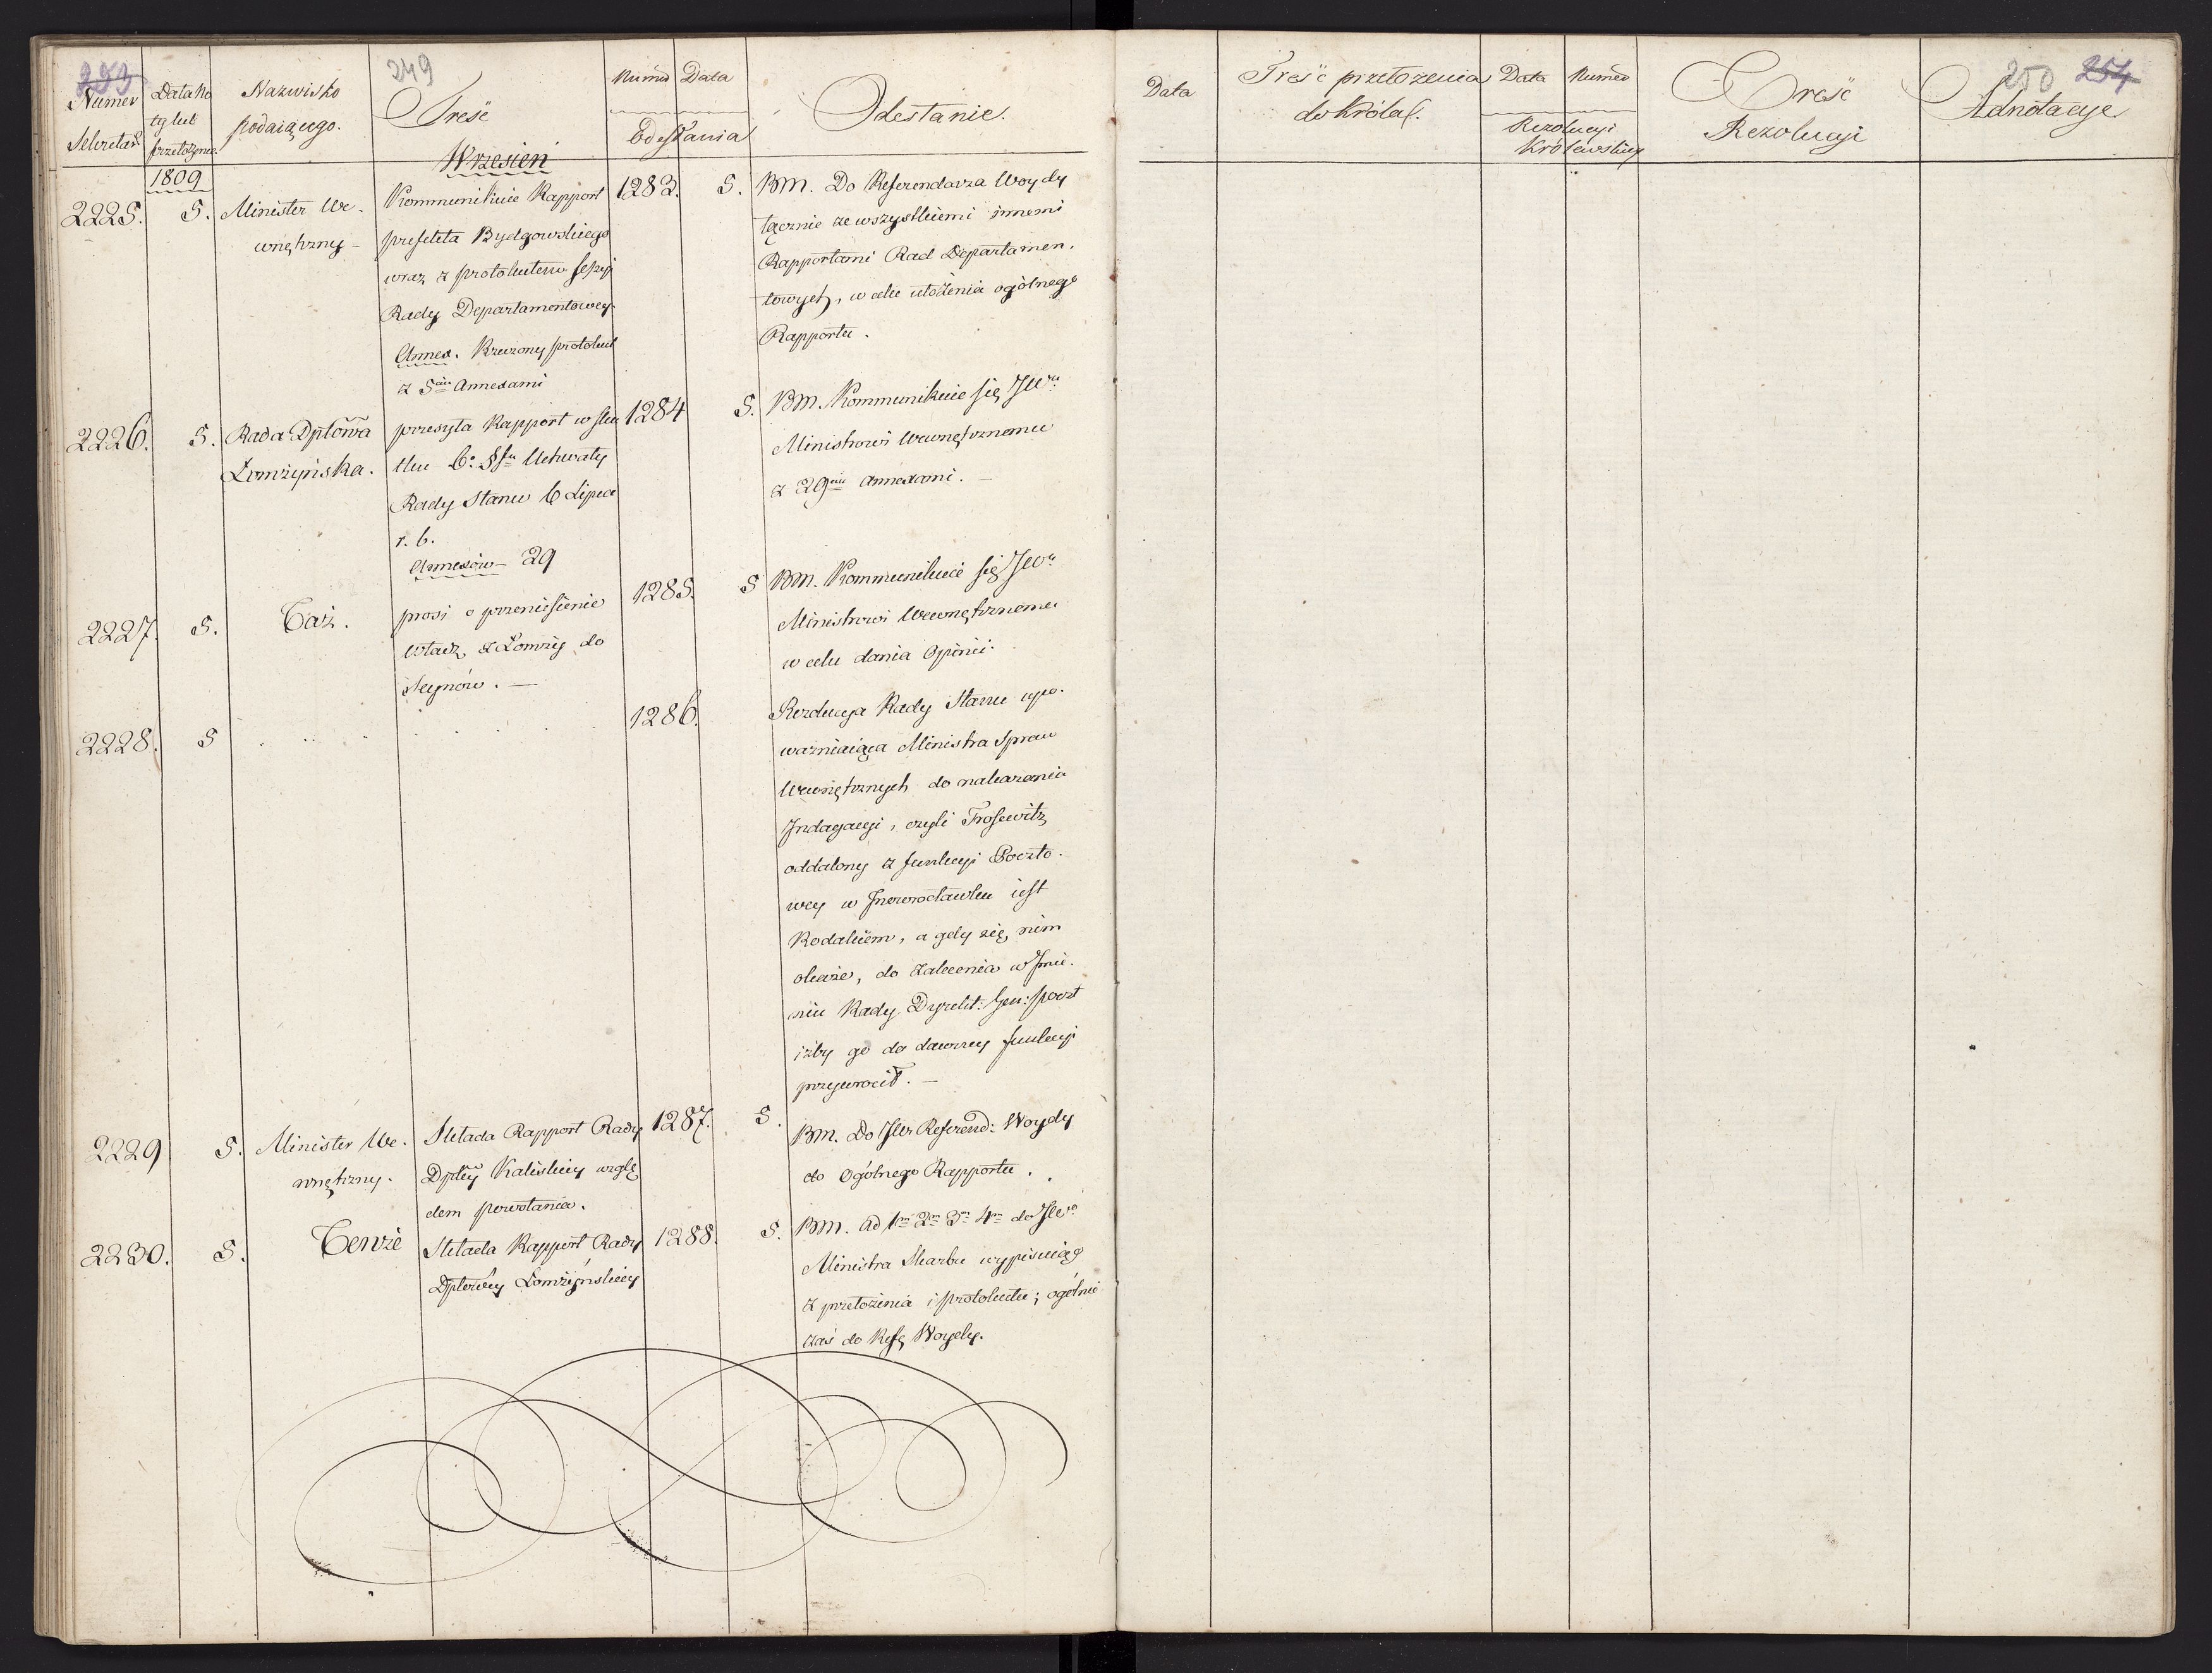 253
249
Numer
Sekretar.
Data No
ty lub
przełożenia
Nazwisko
Podaiącego.
Treść
Numer Data
Odesłania
Odesłanie.
Wrzesień
1809
2225. 5. Minister We-
wnętrzny -
Kommunikuie Rapport
prefekta Bydgowskiego
wraz z protokułem sessyi
Rady Departamentowey.
Annex. Rzeczony protokuł
z 5ciu Annexami
1283. 5.
BM. Do Referendarza Woydy
łącznie ze wszystkiemi innemi
Rapportami Rad Departamen-
towych, w celu ułożenia ogólnego
Rapportu.
2226. 5. Rada Dptowa
Łomżyńska.
przesyła Rapport w sku
tku 6o §fu Uchwały
Rady Stanu 6 Lipca
r. b.
Annexów - 29
1284 5.
BM. Kommunikuie się JWu
Ministrowi Wewnętrznemu
z 29ciu annexami. -
2227. 5. Taż.
prosi o przeniesienie
władz z Łomży do
Seynów. -
1285. 5
BM. Kommunikuie się JWu
Ministrowi Wewnętrznemu
w celu dania Opinii.
2228. 5 . . . . . . . .
1286.
Rezolucya Rady Stanu upo-
ważniaiąca Ministra Spraw
Wewnętrznych do nakazania
Indagacyi, czyli Trosewitz
oddalony z funkcyi Poczto-
wey w Inowrocławku iest
Rodakiem, a gdy się nim
okaże, do zalecenia w Imie-
niu Rady Dyrekt: Gen: poczt
iżby go do dawney funkcyi
przywrócił. -
2229 5. Minister We-
wnętrzny.
Składa Rapport Rady
Dptey Kaliskiey wzglę
dem powstania.
1287. 5.
BM. Do JWo Referend: Woydy
do Ogólnego Rapportu.
2230. 5. Tenże
Składa Rapport Rady
Dptowey Łomżyńskiey
1288. 5.
BM. Ad 1m 2m 3m 4m do JWo
Ministra Skarbu wypisuiąc
z przełożenia i protokułu; ogólnie
zaś do Refę Woydy.
Data
Treść przełożenia
do Króla.
Data Numer
Rezolucyi
Królewskiey
Treść
Rezolucyi
250 254
Adnotacye